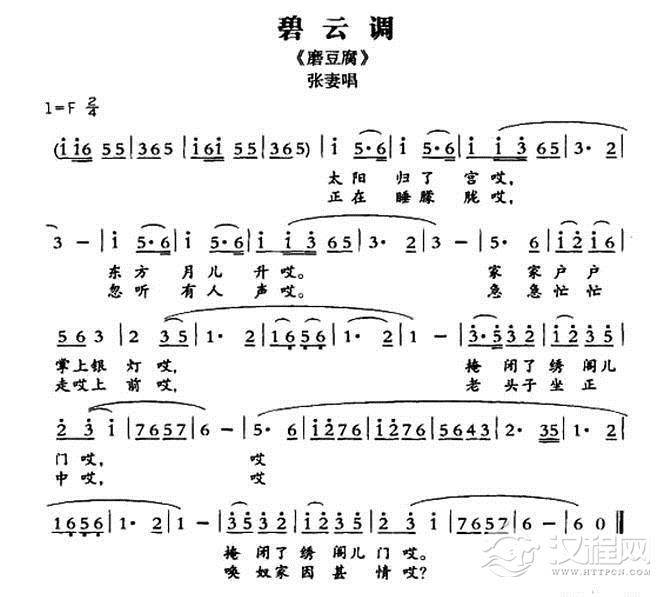 碧云调
《磨豆腐》
张妻唱
1=F 2/4
(i i i6 55 | 365 | i6i 55 | 365) | i 5·6 | i 5·6 | i i 3 65 | 3· 2 |
太阳归了宫哎，
正在睡朦胧哎，
3 - | i 5·6 | i 5·6 | i i 3 65 | 3· 2 | 3 - | 5· 6 | i2 i6 |
东方月儿升哎。家家户户
忽听有人声哎。急急忙忙
56 3 | 2 35 | 1· 2 | 1656 | 1· 2 | 1 - | 3·532 | i235 |
掌上银灯哎，掩闭了绣阁儿
走哎上前哎，老头子坐正
2 3 i | 7657 | 6 - | 5· 6 | i276 | i276 | 5643 | 2· 35 | 1· 2 |
门哎，哎
中哎，哎
1656 | 1· 2 | 1 - | 3532 | i235 | 2 3 i | 7657 | 6 - | 60 ‖
掩闭了绣阁儿门哎。
唤奴家因甚情哎？
汉程网
WWW.HTTPCN.COM